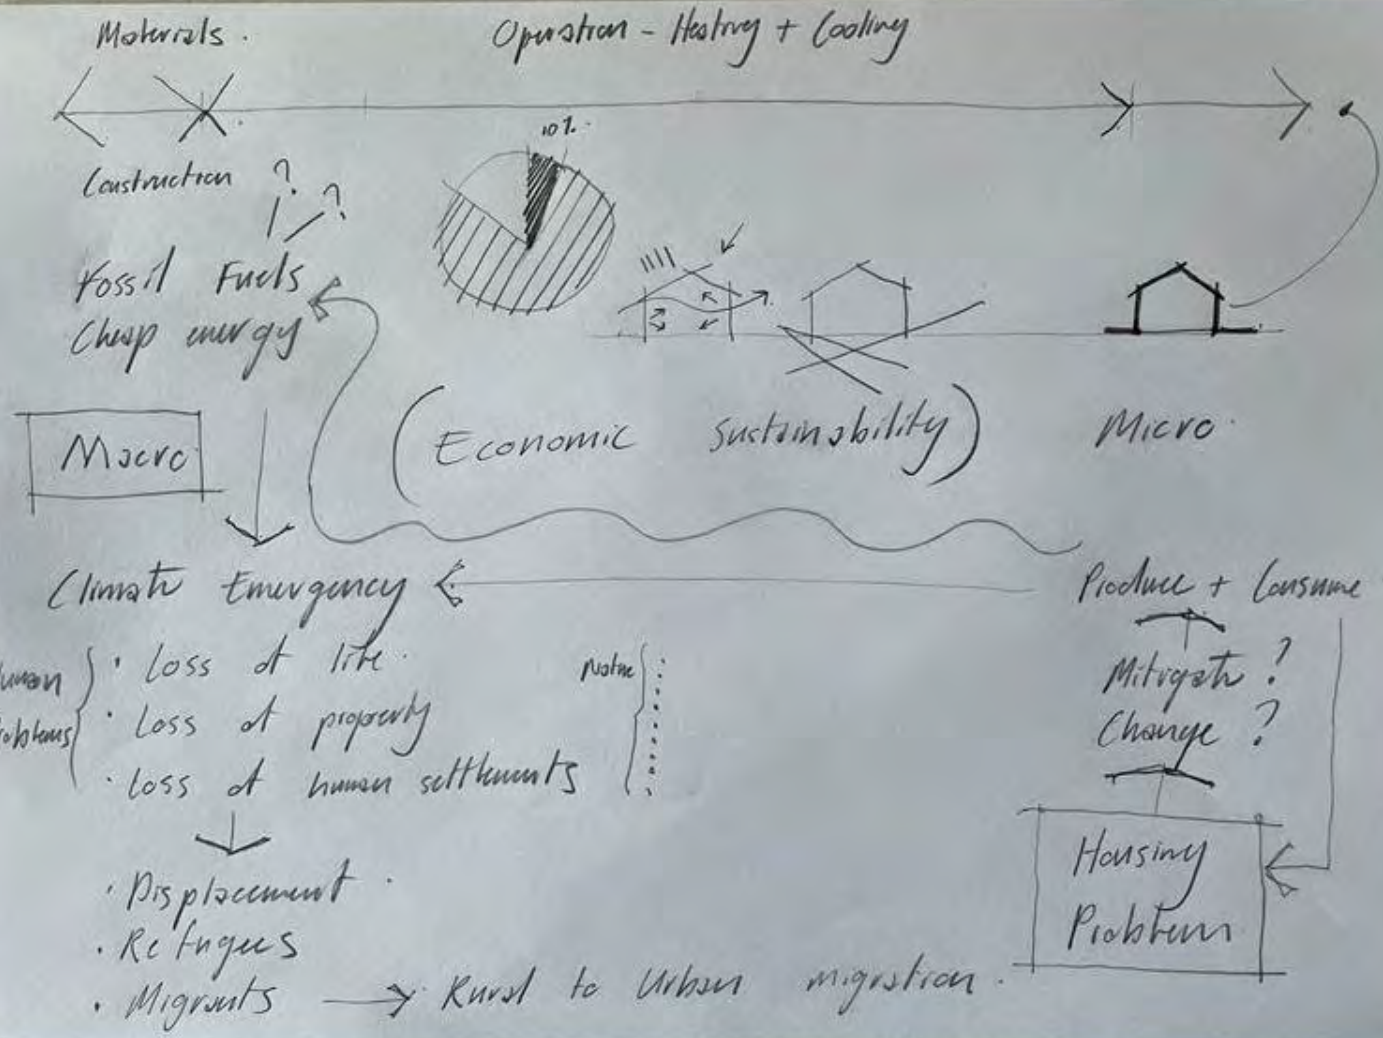 Materials.
Operation - Heating + Cooling
10%.
Construction ?
?
Fossil Fuels
Cheap energy
Macro
(Economic sustainability)
Micro.
Climate Emergency
Produce + Consume
human problems
· Loss of life.
· Loss of property
· Loss of human settlements
Nature
Mitigate ?
Change ?
Housing
Problem
· Displacement.
· Refugees
· Migrants → Rural to Urban migration.